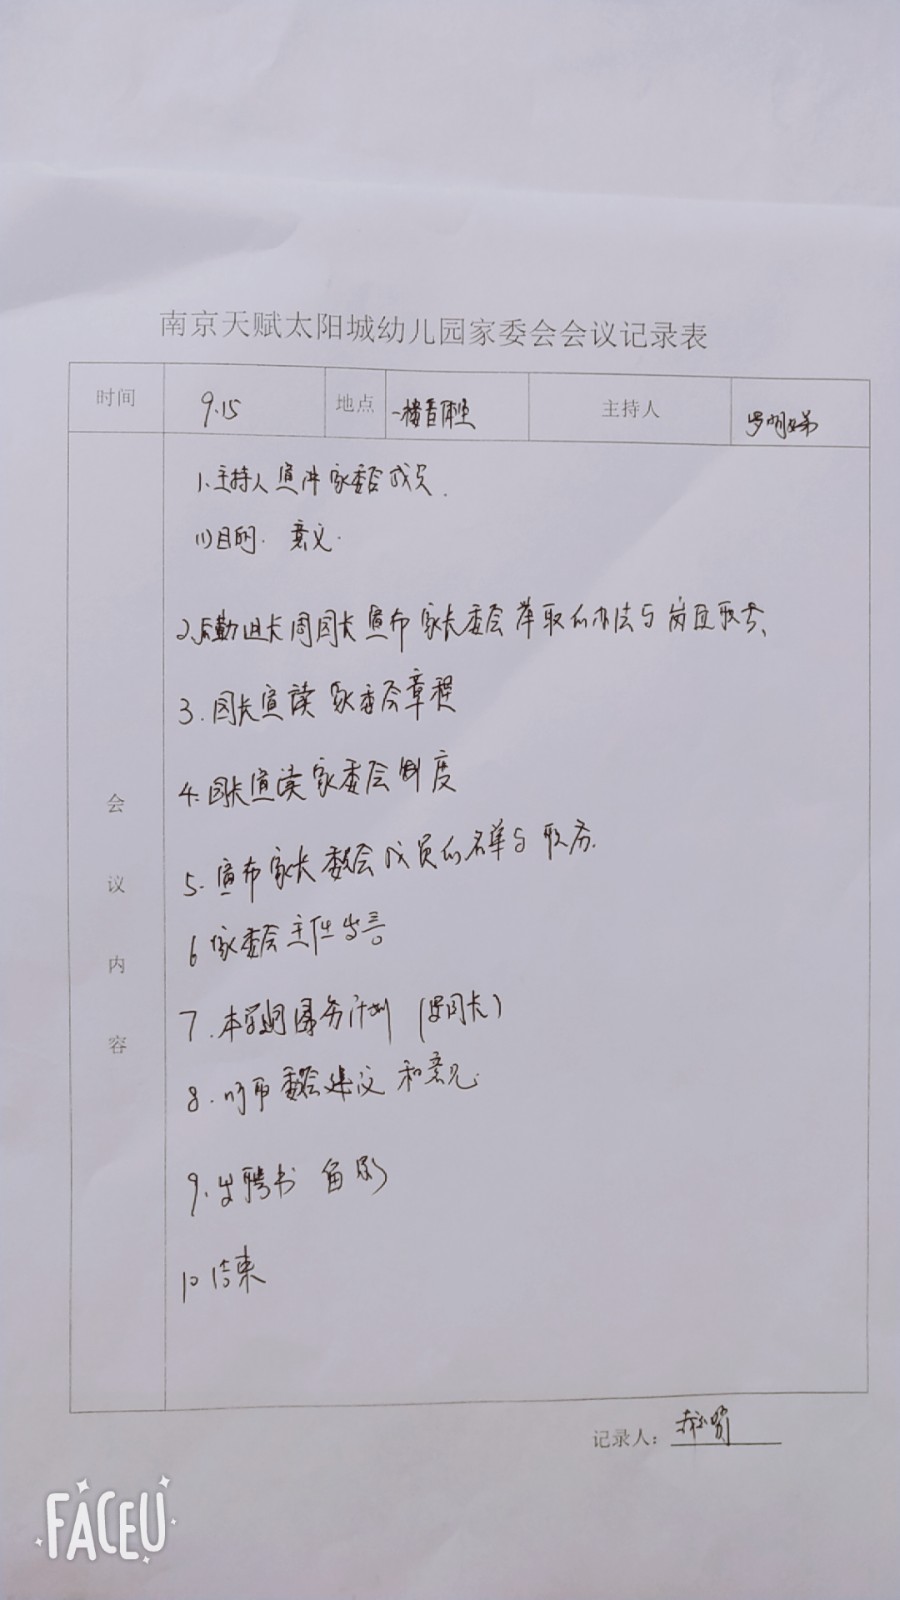 南京天赋太阳城幼儿园家委会会议记录表
时间 9.15 地点 一楼音体室 主持人 罗明娣
会议内容
1.主持人宣读家委会成员.
(1)目的.意义.
2.后勤园长周园长宣布家长委会 取的办法与岗位职
3.园长宣读家委会章程
4.园长宣读家委会制度
5.宣布家长委会成员的名单与职务.
6 家委会主任发言
7.本学期 务计划 (罗园长)
8.听取委会建议和意见.
9.发聘书 留影
10 结束
记录人:
FACEU